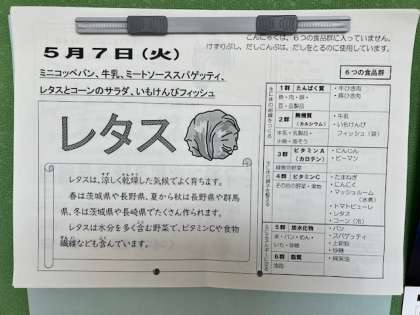 こんにゃくは、6つの食品群に入っていません。
けずりぶし、だしこんぶは、だしをとるのに使用しています。
5月7日(火)
ミニコッペパン、牛乳、ミートソーススパゲッティ、
レタスとコーンのサラダ、いもけんぴフィッシュ
レタス
レタスは、涼しく乾燥した気候でよく育ちます。
春は茨城県や長野県、夏から秋は長野県や群馬
県、冬は茨城県や長崎県でたくさん作られます。
レタスは水分を多く含む野菜で、ビタミンCや食物
繊維なども含んでいます。
6つの食品群
1群 たんぱく質
魚・肉・卵・
豆・豆製品
・牛ひき肉
・豚ひき肉
2群 無機質
(カルシウム)
牛乳・乳製品・
小魚・海そう
・牛乳
・いもけんぴ
フィッシュ(袋)
3群 ビタミンA
(カロテン)
緑黄色野菜
・にんじん
・ピーマン
4群 ビタミンC
その他の野菜・果物
・たまねぎ
・にんにく
・マッシュルーム
(水煮)
・トマトピューレ
・レタス
・コーン(冷)
5群 炭水化物
米・パン・めん・
いも・砂糖
・パン
・スパゲッティ
・上新粉
・砂糖
6群 脂質
油脂
・綿実油